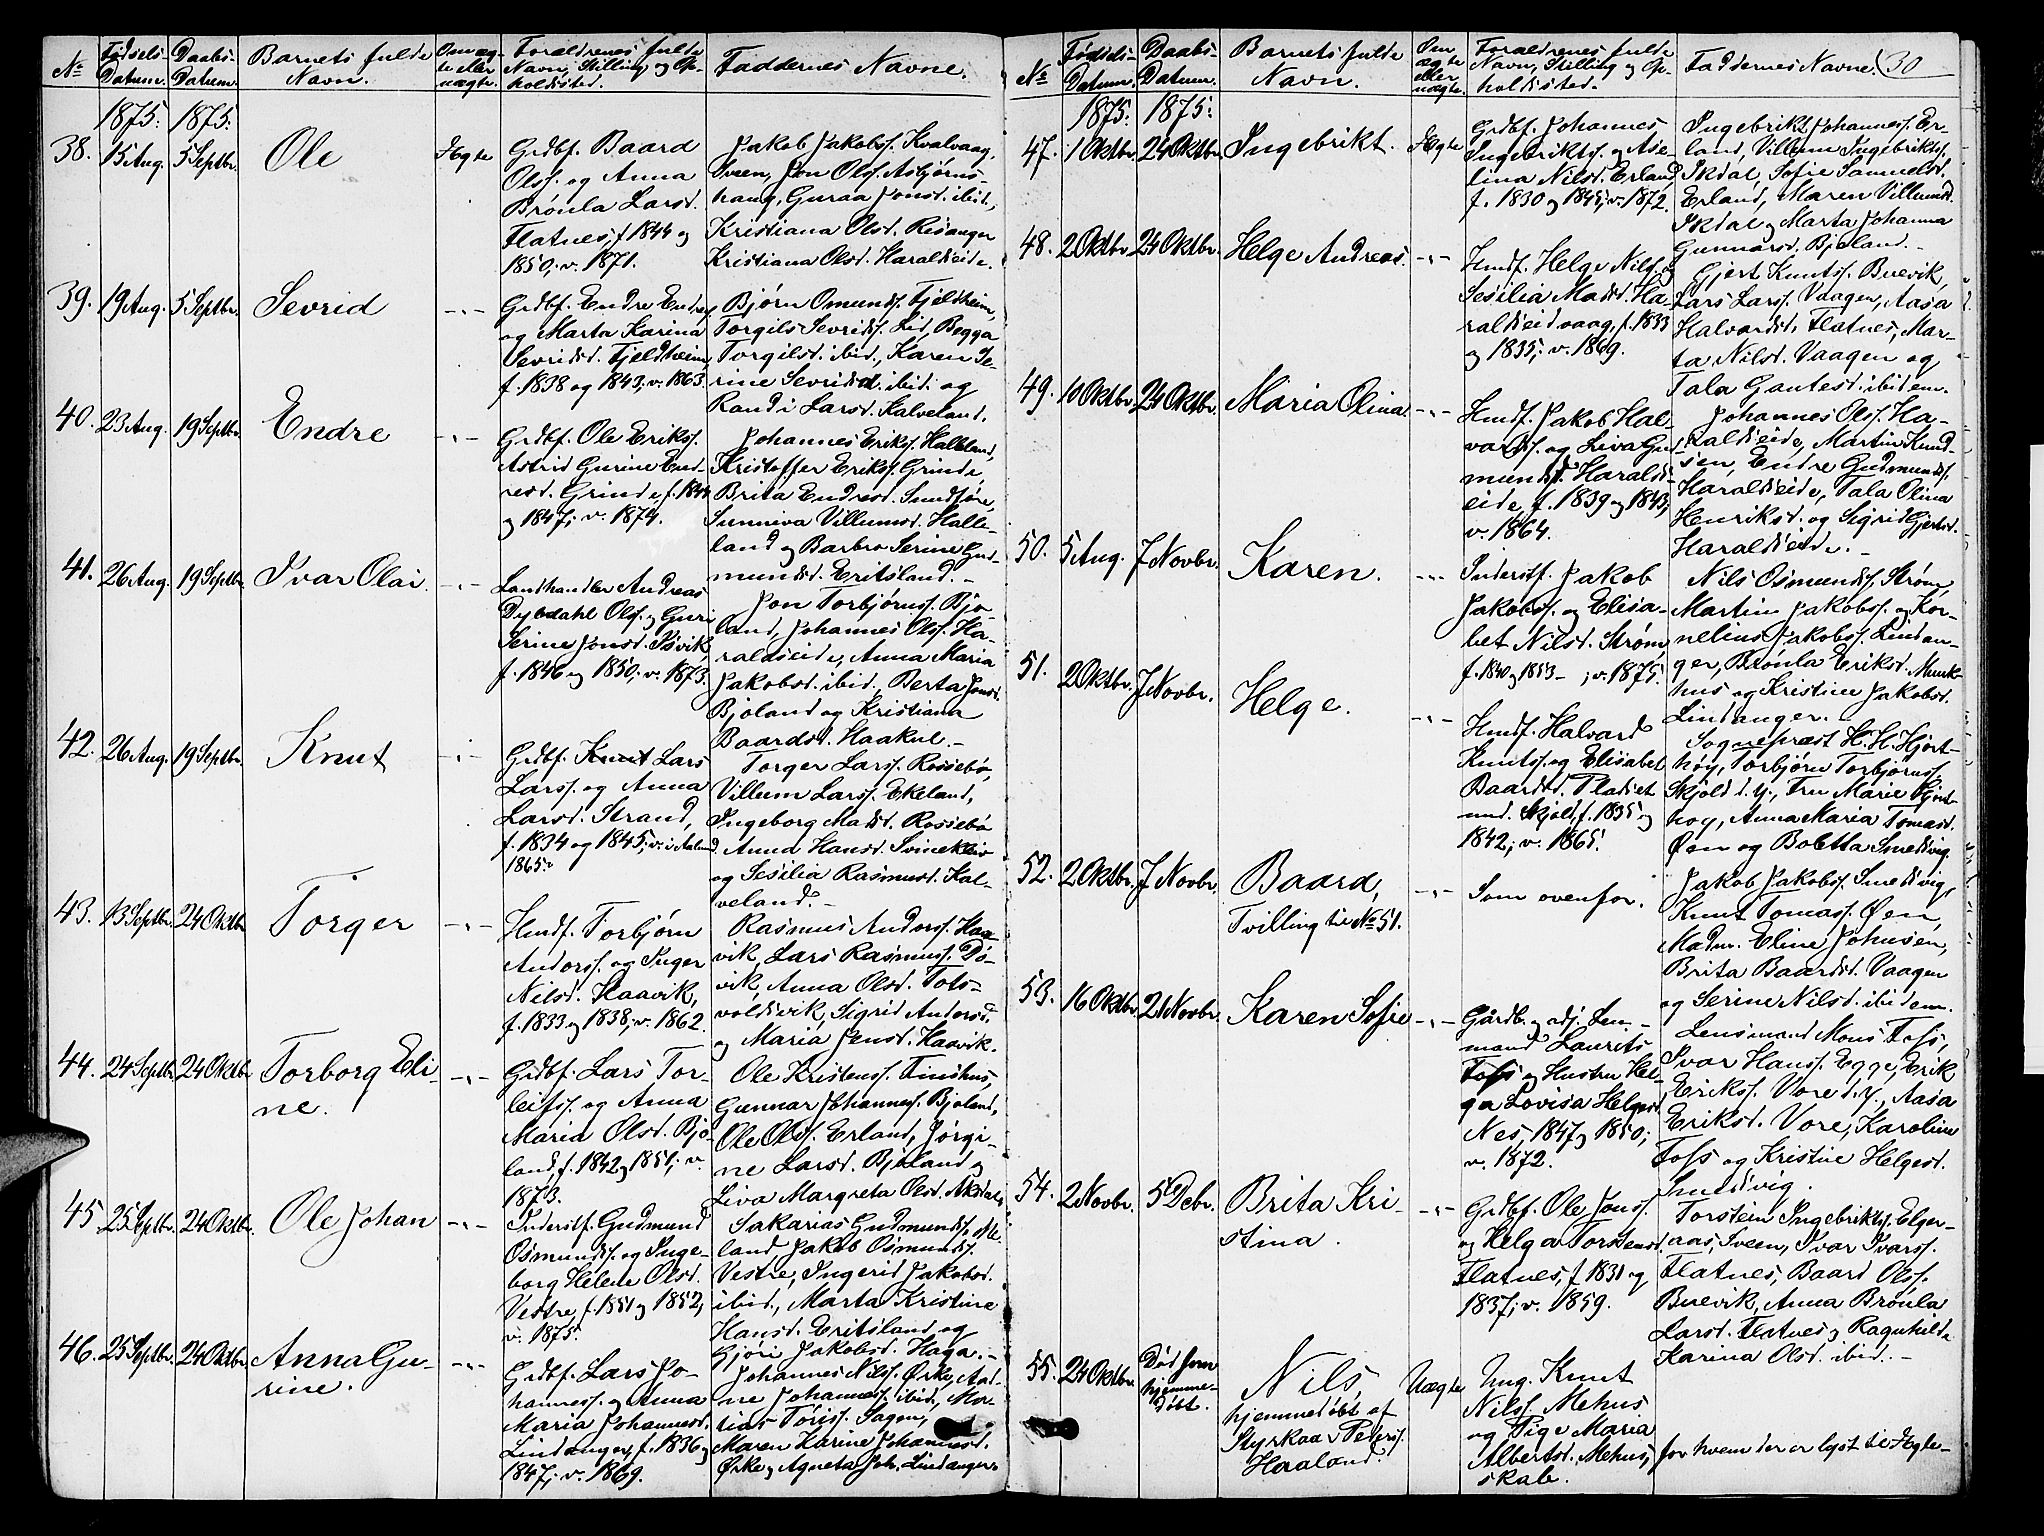 No
Fødsels-
Datum.
Daabs-
Datum.
Barnets fulde
Navn.
Om æg-
te eller
uægte.
Forældrenes fulde
Navn, Stilling og Op-
holdssted.
Faddernes Navne.
1875. 1875.
38. 15 Aug. 5 Septbr. Ole Ægte
Grdbf. Baard
Olss. og Anna
Brønla Larsd.
Flatnes, f. 1844 og
1850; v. 1871.
Jakob Jakobss. Kvalvaag,
Sveen, Jon Olss. Asbjørns-
haug, Guraa Jonsd. ibid.,
Kristiana Olsd. Risanger
Kristiana Olsd. Haraldseide.
39. 19 Aug. 5 Septbr. Sevrid -"-
Grdbf. Endre Endres.
og Marta Karina
Sevridsd. Fjeldheim,
f. 1838 og 1843; v. 1863.
Bjørn Omunds. Fjeldheim,
Torgils Sevrids. Lid, Begga
Torgilsd. ibid., Karen Se-
rine Sevridsd. ibid. og
Randi Larsd. Kalveland.
40. 23 Aug. 19 Septbr. Endre -"-
Grdbf. Ole Erikss.
Astrid Gurine End-
resd. Grinde, f. 1844
og 1847; v. 1874.
Johannes Erikss. Halleland,
Kristoffer Erikss. Grinde,
Brita Endresd. Sundføre,
Sunniva Villumsd. Halle-
land og Barbro Serine Gud-
mundsd. Eritsland.-
41. 26 Aug. 19 Septbr. Ivar Olai. -"-
Landhandler Andreas
Dybdahl Olss. og Guri
Serine Jonsd. Isvik,
f. 1846 og 1850; v. 1873.
Jon Torbjørnss. Bjo-
land, Johannes Olss. Ha-
raldseide, Anna Maria
Jakobsd. ibid., Berta Jonsd.
Bjoland og Kristiana
Baardsd. Haakul.-
42. 26 Aug. 19 Septbr. Knut -"-
Grdbf. Knut Lars
Larss. og Anna
Larsd. Strand,
f. 1834 og 1845; v. i
1865.
Torger Larss. Rossebø,
Villum Larss. Ekeland,
Ingeborg Madsd. Rossebø
Anna Hansd. Svinekleiv
og Sesilia Rasmusd. Kal-
veland.-
43. 13 Septbr. 24 Oktbr. Torger -"-
Husf. Torbjørn
Andorss. og Inger
Nilsd. Haavik,
f. 1833 og 1838; v. 1862.
Rasmus Andorss. Haa-
vik, Lars Rasmuss. Dø-
vik, Anna Olsd. Tøts-
voldsvik, Sigrid Andorsd.
og Maria Jensd. Haavik.
44. 24 Septbr. 24 Oktbr. Torborg Eli-
ne. -"-
Grdbf. Lars Tor-
leifss. og Anna
Maria Olsd. Bjo-
land, f. 1842 og 1851; v.
1873.
Ole Kristenss. Tinshus,
Gunnar Johanness. Bjoland,
Ole Olss. Erland, Jørgi-
ne Larsd. Bjoland og
Liva Margreta Olsd. Aksdal.
45. 25 Septbr. 24 Oktbr. Ole Johan -"-
Inderstf. Gudmund
Osmunds. og Inge-
borg Helene Olsd.
Vestre, f. 1851 og 1852;
v. 1875.
Sakarias Gudmunds.
land, Jakob Osmunds.
Vestre, Ingerid Jakobsd.
ibid., Marta Kristine
Hansd. Eritsland og
Gjøri Jakobsd. Haga.-
46. 25 Septbr. 24 Oktbr. Anna Gu-
rine. -"-
Grdbf. Lars Jo-
hanness. og Anna
Maria Johannesd.
Lindanger, f. 1836 og
1847; v. 1869.
Johannes Nilss. Ørke, Aad-
ne Johanness. ibid., Ma-
tias Tøriss. Sagen,
Maren Karine Johannesd.
Ørke og Agneta Joh. Lindanger.
No
Fødsels-
Datum.
Daabs-
Datum.
Barnets fulde
Navn.
Om
ægte
eller
uægte.
Forældrenes fulde
Navn, Stilling og Op-
holdssted.
Faddernes Navne. 30
1875. 1875.
47. 1 Oktbr. 24 Oktbr. Ingebrikt. Ægte
Grdbf. Johannes
Ingebriktss. og Ase-
lina Nilsd. Erland,
f. 1830 og 1845; v. 1872.
Ingebrikt Johanness. Er-
land, Villum Ingebriktss.
Ikdal, Sofie Samuelsd.
Erland, Maren Villumsd.
Ikdal og Marta Johanna
Gunnarsd. Bjoland.-
48. 2 Oktbr. 24 Oktbr. Helge Andreas. -"-
Husf. Helge Nilss. og
Sesilia Madsd. Ha-
raldseidvaag, f. 1833
og 1835; v. 1869.
Gjert Knutss. Buevik,
Lars Larss. Vaagen, Aasa
Halvardsd. Flatnes, Mar-
ta Nilsd. Vaagen og
Tala Gautesd. ibidem.
49. 10 Oktbr. 24 Oktbr. Maria Olina. -"-
Husf. Jakob Hal-
vardss. og Liva Gud-
mundsd. Haralds-
eide, f. 1839 og 1843;
v. 1864.
Johannes Olss. Ha-
raldseide, Martin Knud-
sen, Endre Gudmunds.
Haraldseide, Tala Olina
Henriksd. og Sigrid Gjertsd.
Haraldseide.-
50. 5 Aug. 7 Novbr. Karen. -"-
Inderstf. Jakob
Jakobss. og Elisa-
bet Nilsd. Strøm,
f. 1840 og 1853- ; v. 1875.
Nils Osmunds. Strøm,
Martin Jakobss. og Kor-
nelius Jakobss. Lindan-
ger, Brønla Eriksd. Munk-
hus og Kristine Jakobsd.
Lindanger.-
51. 2 Oktbr. 7 Novbr. Helge. -"-
Husf. Halvard
Knutss. og Elisabet
Baardsd. Pladset
und. Skjold, f. 1835 og
1842; v. 1865.
Sognepræst H. H. Hjort-
høy, Torbjørn Torbjørnss.
Skjold d. y., Fru Marie Hjort-
høy, Anna Maria Tomasd.
Øen og Boletta Smedvig.
52. 2 Oktbr. 7 Novbr. Baard,
Tvilling til No 51. -"-
Som ovenfor.
Jakob Jakobss. Smedvig,
Knut Tomass. Øen,
Madm. Eline Johnsen,
Brita Baardsd. Vaagen
og Serine Nilsd. ibidem.
53. 16 Oktbr. 21 Novbr. Karen Sofie -"-
Gårdb. og adj. Len-
mand Laurits
Foss og Hustru Hel-
ga Lovisa Helgesd.
Nes, 1847 og 1850;
v. 1872.
Lensmand Mons Foss,
Ivar Hanss. Egge, Erik
Erikss. Vore d. y., Aasa
Eriksd. Vore, Karoline
Foss og Kristine Helgesd.
Smedvig.
54. 2 Novbr. 5 Debr. Brita Kri-
stina. -"-
Grdbf. Ole Jonss.
og Helga Torstensd.
Flatnes, f. 1831 og
1837; v. 1859.
Torstein Ingebriktss. Elger-
aas, Sveen, Ivar Ivarss.
Flatnes, Baard Olss.
Buevik, Anna Brønla
Larsd. Flatnes og Ragnhilde
Karina Olsd. ibid.-
55. 24 Oktbr. Død som
hjemme-
døbt.
Nils,
hjemmedøbt af
Styrkaa Peders.
Heraland. Uægte
Ung. Knut
Nilss. Mehus
og Pige Maria
Albertsd. Mehus, for hvem der er lyst til Ægte-
skab.